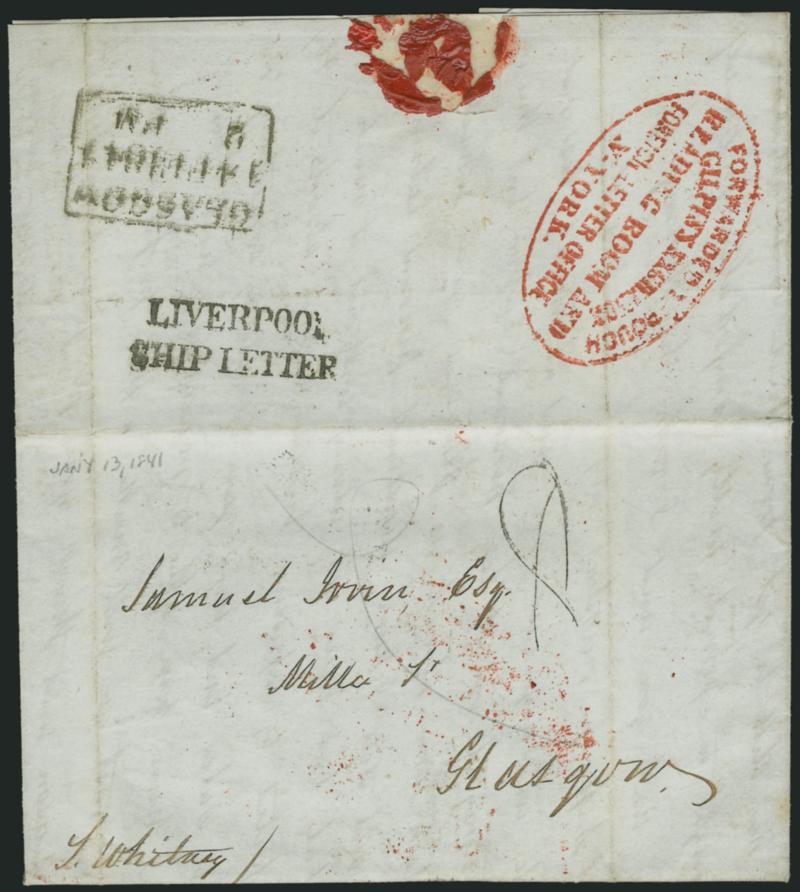 GLASGOW
8 PM
FORWARDED THROUGH
GILPIN'S EXCHANGE
READING ROOM AND
FOREIGN LETTER OFFICE
N-YORK.
LIVERPOOL
SHIP LETTER
JANY 13, 1841
8
Samuel Irvin, Esq.
Miller St
Glasgow.
S. Whitney /